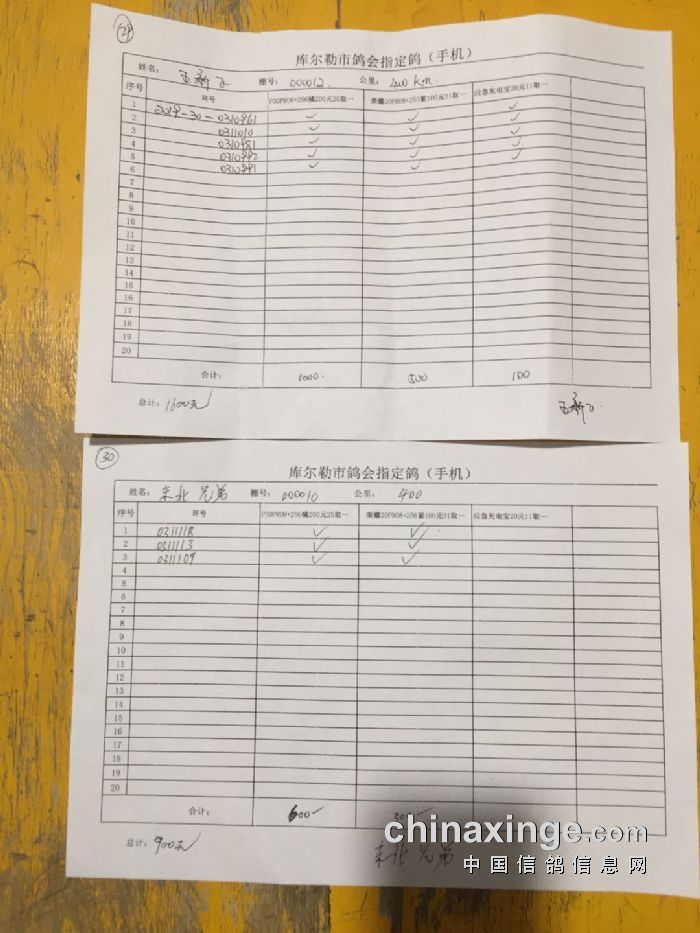 29
库尔勒市鸽会指定鸽（手机）
姓名： 棚号： 000012 公里： 400km
序号 环号 P30PRO8+256橘200元25取一 荣耀20PRO8+256紫100元11取一 应急充电宝20元11取一
1 2019-30-0310961 ✓ ✓ ✓
2 0311010 ✓ ✓ ✓
3 0310981 ✓ ✓ ✓
4 0310992 ✓ ✓ ✓
5 0310991 ✓ ✓ ✓
6
7
8
9
10
11
12
13
14
15
16
17
18
19
20
合计： 1000 500 100
总计： 1600元
30
库尔勒市鸽会指定鸽（手机）
姓名： 东北兄弟 棚号： 000010 公里： 400
序号 环号 P30PRO8+256橘200元25取一 荣耀20PRO8+256紫100元11取一 应急充电宝20元11取一
1 0311118 ✓ ✓
2 0311113 ✓ ✓
3 0311109 ✓ ✓
4
5
6
7
8
9
10
11
12
13
14
15
16
17
18
19
20
合计： 600 300
总计： 900元
东北兄弟
chinaxinge.com
中国信鸽信息网